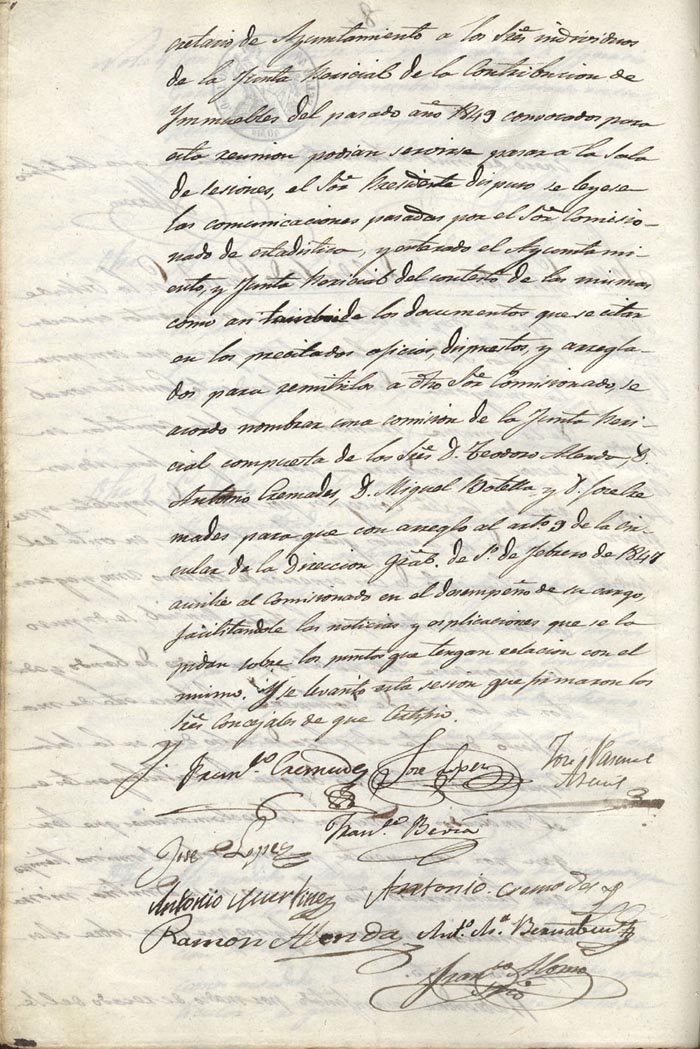 cretario de Ayuntamiento a los Sres individuos
de la Junta Pericial de la Contribucion de
Ynmuebles del pasado año 1849 convocados para
esta reunion podian servirse pasar a la Sala
de sesiones, el Sor Presidente dispuso se leyese
las comunicaciones pasadas por el Sor Comisio-
nado de estadistica, y enterado el Ayuntami-
ento, y Junta Pericial del contesto de las mismas
como asi tambien de los documentos que se citan
en los precitados oficios, dispuestos, y arregla-
dos para remitirlos a dho Sor Comisionado, se
acordo nombrar una comision de la Junta Peri-
cial compuesta de los Sres D. Teodoro Alenda, D.
Antonio Cremades, D. Miguel Botella y D. Jose Cre
mades para que con arreglo al arto 9 de la Cir-
cular de la Direccion Gral. de 1º de febrero de 1847
ausilie al Comisionado en el desempeño de su cargo,
facilitandole las noticias y esplicaciones que se la
pidan sobre los puntos que tengan relacion con el
mismo. Y se levantó esta sesion que firmaron los
Sres Concejales de que Certifico.
Franco Cremades Jose Lopez José Pascual
Franco Beviá
Jose Lopez
Antonio Martinez Antonio Cremades
Ramon Alenda Anto Ma Bernabeu
Franco Alonso
Srio